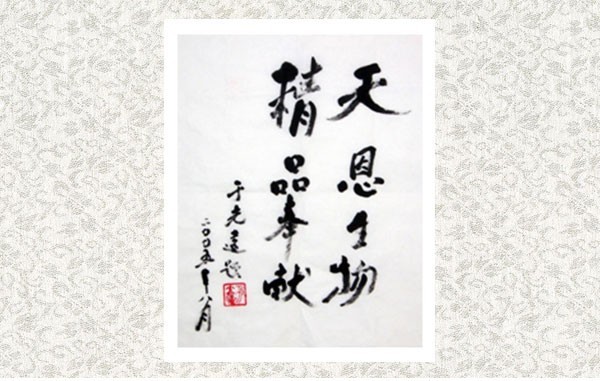 天恩生物
精品奉献
于光远题
二〇〇五年八月